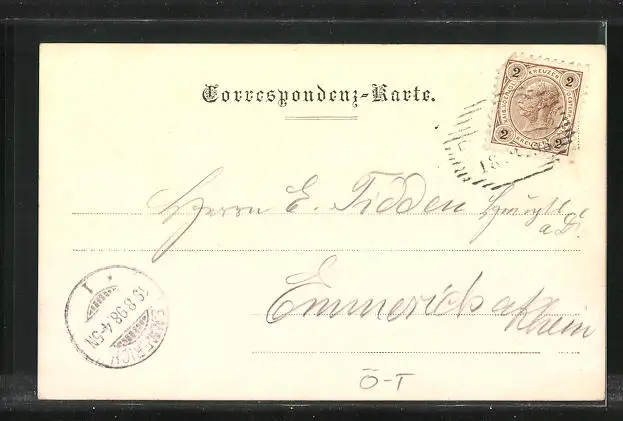 Correspondenz-Karte.
2 KREUZER 2
2 KREUZER 2
18
Herrn E. Tidden
a.D.
Emmerich a/Rhein
EMMERICH
19.8.98.4-5N
* 1
Ö-T